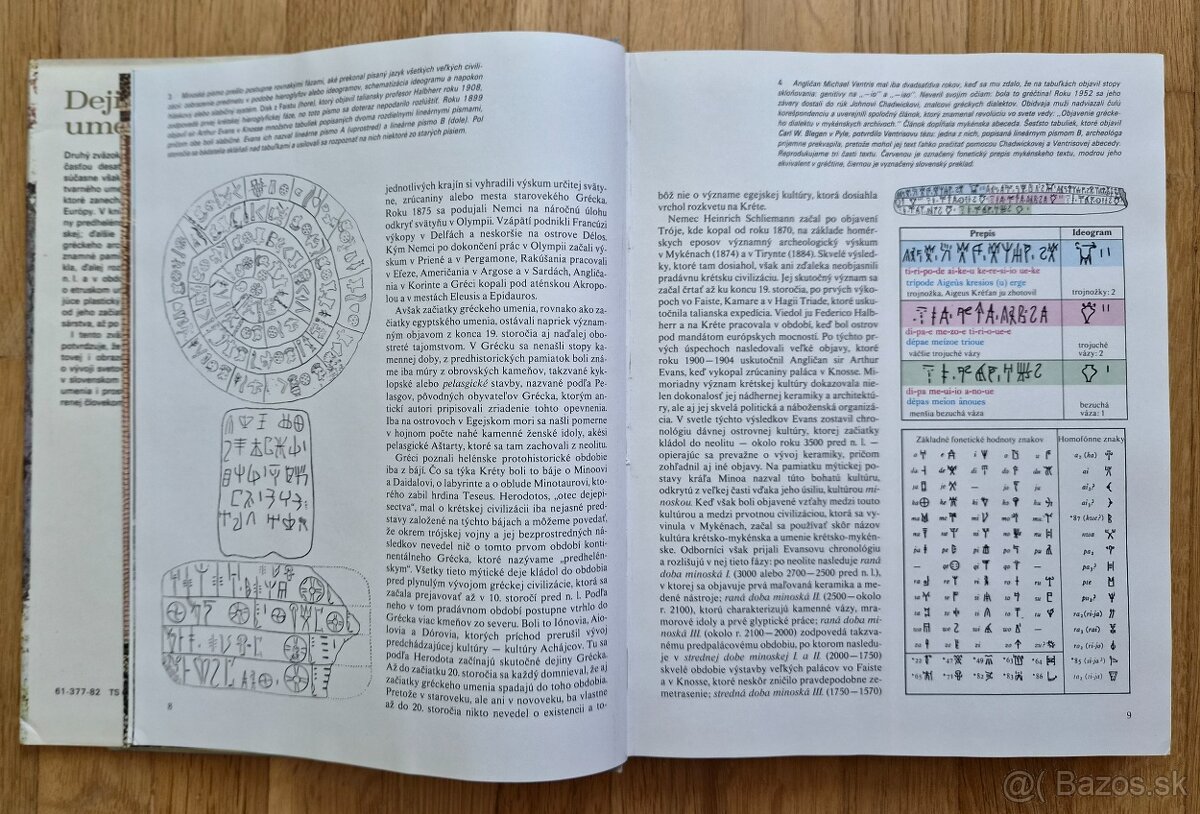 Dejiny
ume
Druhý zväzok
časťou desať
súčasne však
tvarného ume
ktoré zanech
Európy. V kni
ky predhelén
skej; ďalšie
gréckeho ar
známné pam
ka, ďalej roz
n. l. a v obd
o etruskom u
júce plastický
od jeho začiat
sárstva, až po
I tento zväz
potvrdzuje, že
tovej i obrazo
o vývoji svetov
v slovenskom
umenia i prosp
renej človekom
61-377-82 TS
3 Minojské písmo prešlo postupne rovnakými fázami, aké prekonal písaný jazyk všetkých veľkých civili-
zácií: zobrazenie predmetu v podobe hieroglyfov alebo ideogramov, schematizácia ideogramu a napokon
hláskový alebo slabičný systém. Disk z Faistu (hore), ktorý objavil taliansky profesor Halbherr roku 1908,
zodpovedá prvej krétskej hieroglyfickej fáze, no toto písmo sa doteraz nepodarilo rozlúštiť. Roku 1899
objavil sir Arthur Evans v Knosse množstvo tabuliek popísaných dvoma rozdielnymi lineárnymi písmami,
pričom obe boli slabičné. Evans ich nazval lineárne písmo A (uprostred) a lineárne písmo B (dole). Pol
storočia sa bádatelia skláňali nad tabuľkami a usilovali sa rozpoznať na nich niektoré zo starých písiem.
jednotlivých krajín si vyhradili výskum určitej sväty-
ne, zrúcaniny alebo mesta starovekého Grécka.
Roku 1875 sa podujali Nemci na náročnú úlohu
odkryť svätyňu v Olympii. Vzápätí podnikli Francúzi
výkopy v Delfách a neskoršie na ostrove Délos.
Kým Nemci po dokončení prác v Olympii začali vý-
skum v Priéné a v Pergamone, Rakúšania pracovali
v Efeze, Američania v Argose a v Sardách, Angliča-
nia v Korinte a Gréci kopali pod aténskou Akropo-
lou a v mestách Eleusis a Epidauros.
Avšak začiatky gréckeho umenia, rovnako ako za-
čiatky egyptského umenia, ostávali napriek význam-
ným objavom z konca 19. storočia aj naďalej obo-
streté tajomstvom. V Grécku sa nenašli stopy ka-
mennej doby, z predhistorických pamiatok boli zná-
me iba múry z obrovských kameňov, takzvané kyk-
lopské alebo pelasgické stavby, nazvané podľa Pe-
lasgov, pôvodných obyvateľov Grécka, ktorým an-
tickí autori pripisovali zriadenie tohto opevnenia.
Iba na ostrovoch v Egejskom mori sa našli pomerne
v hojnom počte nahé kamenné ženské idoly, akési
pelasgické Aštarty, ktoré sa tam zachovali z neolitu.
Gréci poznali helénske protohistorické obdobie
iba z bájí. Čo sa týka Kréty boli to báje o Minoovi
a Daidalovi, o labyrinte a o oblude Minotaurovi, kto-
rého zabil hrdina Teseus. Herodotos, „otec dejepi-
sectva“, mal o krétskej civilizácii iba nejasné pred-
stavy založené na týchto bájach a môžeme povedať,
že okrem trójskej vojny a jej bezprostredných ná-
sledkov nevedel nič o tomto prvom období konti-
nentálneho Grécka, ktoré nazývame „predhelén-
skym“. Všetky tieto mýtické deje kládol do obdobia
pred plynulým vývojom gréckej civilizácie, ktorá sa
začala prejavovať až v 10. storočí pred n. l. Podľa
neho v tom pradávnom období postupne vtrhlo do
Grécka viac kmeňov zo severu. Boli to Iónovia, Aio-
lovia a Dórovia, ktorých príchod prerušil vývoj
predchádzajúcej kultúry — kultúry Achájcov. Tu sa
podľa Herodota začínajú skutočné dejiny Grécka.
Až do začiatku 20. storočia sa každý domnieval, že aj
začiatky gréckeho umenia spadajú do toho obdobia.
Pretože v staroveku, ale ani v novoveku, ba vlastne
až do 20. storočia nikto nevedel o existencii a to-
8
4 Angličan Michael Ventris mal iba dvadsaťdva rokov, keď sa mu zdalo, že na tabuľkách objavil stopy
skloňovania: genitívy na „–io“ a „–iao“. Neveril svojim očiam: bola to gréčtina! Roku 1952 sa jeho
závery dostali do rúk Johnovi Chadwickovi, znalcovi gréckych dialektov. Obidvaja muži nadviazali čulú
korešpondenciu a uverejnili spoločný článok, ktorý znamenal revolúciu vo svete vedy: „Objavenie gréckе-
ho dialektu v mykénskych archívoch.“ Článok dopĺňala mykénska abeceda. Šesťsto tabuliek, ktoré objavil
Carl W. Blegen v Pyle, potvrdilo Ventrisovu tézu: jedna z nich, popísaná lineárnym písmom B, archeológa
príjemne prekvapila, pretože mohol jej text ľahko prečítať pomocou Chadwickovej a Ventrisovej abecedy.
Reprodukujeme tri časti textu. Červenou je označený fonetický prepis mykénskeho textu, modrou jeho
ekvivalent v gréčtine, čiernou je vyznačený slovenský preklad.
bôž nie o význame egejskej kultúry, ktorá dosiahla
vrchol rozkvetu na Kréte.
Nemec Heinrich Schliemann začal po objavení
Tróje, kde kopal od roku 1870, na základe homér-
skych eposov významný archeologický výskum
v Mykénach (1874) a v Tirynte (1884). Skvelé výsled-
ky, ktoré tam dosiahol, však ani zďaleka neobjasnili
pradávnu krétsku civilizáciu. Jej skutočný význam sa
začal črtať až ku koncu 19. storočia, po prvých výko-
poch vo Faiste, Kamare a v Hagii Triade, ktoré usku-
točnila talianska expedícia. Viedol ju Federico Halb-
herr a na Kréte pracovala v období, keď bol ostrov
pod mandátom európskych mocností. Po týchto pr-
vých úspechoch nasledovali veľké objavy, ktoré
roku 1900—1904 uskutočnil Angličan sir Arthur
Evans, keď vykopal zrúcaniny paláca v Knosse. Mi-
moriadny význam krétskej kultúry dokazovala nie-
len dokonalosť jej nádhernej keramiky a architektú-
ry, ale aj jej skvelá politická a náboženská organizá-
cia. V svetle týchto výsledkov Evans zostavil chrono-
lógiu dávnej ostrovnej kultúry, ktorej začiatky
kládol do neolitu — okolo roku 3500 pred n. l. —
opierajúc sa prevažne o vývoj keramiky, pričom
zohľadnil aj iné objavy. Na pamiatku mýtickej po-
stavy kráľa Minoa nazval túto bohatú kultúru,
odkrytú z veľkej časti vďaka jeho úsiliu, kultúrou mi-
nojskou. Keď však boli objavené vzťahy medzi touto
kultúrou a medzi prvotnou civilizáciou, ktorá sa vy-
vinula v Mykénach, začal sa používať skôr názov
kultúra krétsko-mykénska a umenie krétsko-mykén-
ske. Odborníci však prijali Evansovu chronológiu
a rozlišujú v nej tieto fázy: po neolite nasleduje raná
doba minojská I. (3000 alebo 2700—2500 pred n. l.),
v ktorej sa objavuje prvá maľovaná keramika a me-
dené nástroje; raná doba minojská II. (2500—okolo
r. 2100), ktorú charakterizujú kamenné vázy, mra-
morové idoly a prvé glyptické práce; raná doba mi-
nojská III. (okolo r. 2100—2000) zodpovedá takzva-
nému predpalácovému obdobiu, po ktorom nasledu-
je v strednej dobe minojskej I. a II. (2000—1750)
skvelé obdobie výstavby veľkých palácov vo Faiste
a v Knosse, ktoré neskôr zničilo pravdepodobne ze-
metrasenie; stredná doba minojská III. (1750—1570)
Prepis Ideogram
ti-ri-po-de ai-ke-u ke-re-si-jo we-ke
tripode Aigeús kresios (u) erge
trojnožka, Aigeus Kréťan ju zhotovil trojnožky: 2
di-pa-e me-zo-e ti-ri-o-we-e
dépae meizoe trioue
väčšie trojuché vázy
trojuché
vázy: 2
di-pa me-wi-jo a-no-we
dépas meion ánoues
menšia bezuchá váza
bezuchá
váza: 1
Základné fonetické hodnoty znakov Homofónne znaky
9
@( Bazos.sk